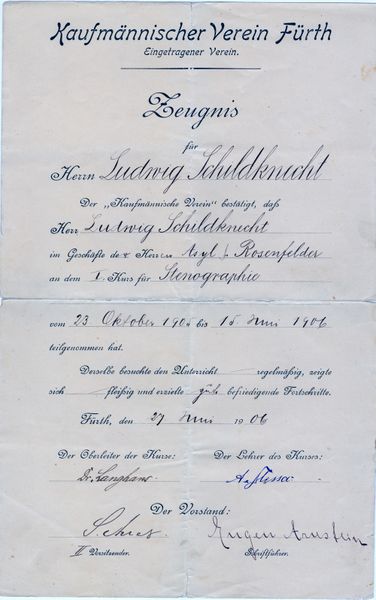 Kaufmännischer Verein Fürth
Eingetragener Verein.
Zeugnis
für
Herrn Ludwig Schildknecht
Der „Kaufmännische Verein“ bestätigt, daß
Herr Ludwig Schildknecht
im Geschäfte der Herren Asyl & Rosenfelder
an dem I. Kurs für Stenographie
vom 23 Oktober 1905 bis 15 Juni 1906
teilgenommen hat.
Derselbe besuchte den Unterricht regelmäßig, zeigte
sich fleißig und erzielte gute befriedigende Fortschritte.
Fürth, den 27 Juni 1906
Der Oberleiter der Kurse: Der Lehrer des Kurses:
Dr. Langhans
Der Vorstand:
Eugen Arnstein
II Vorsitzender. Schriftführer.